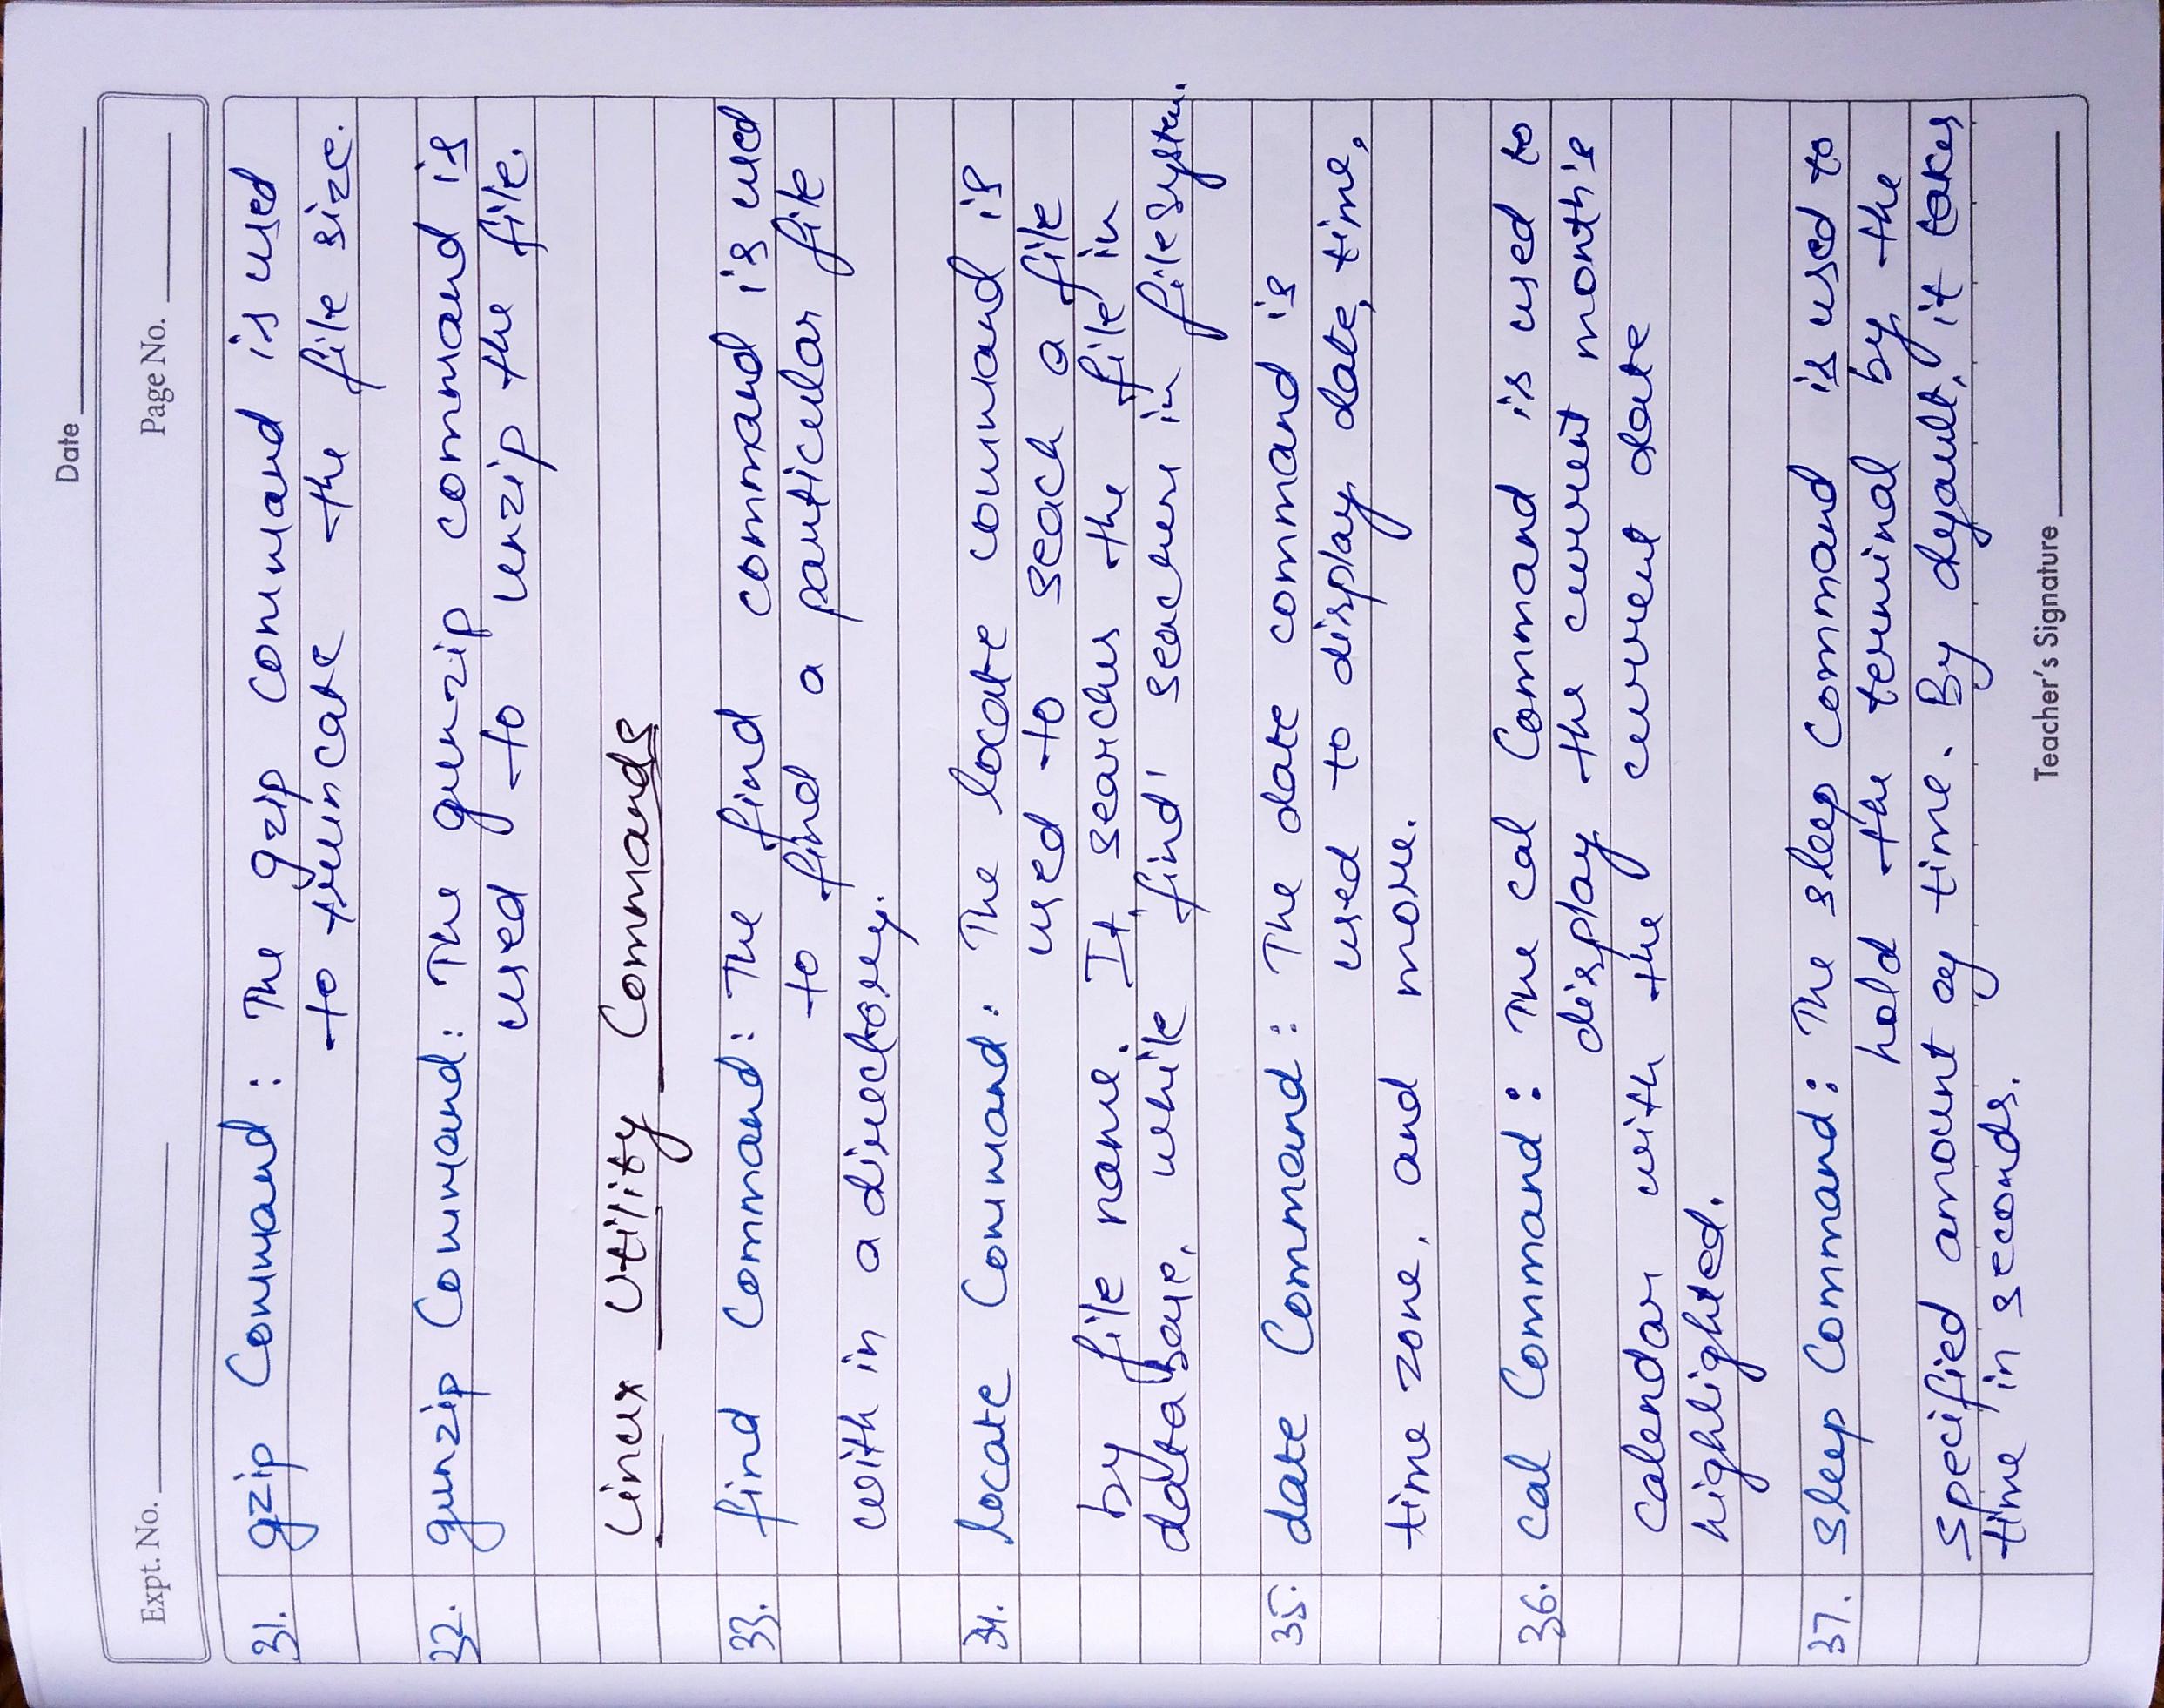 Date
Expt. No.
Page No.
31. gzip Command : The gzip command is used
to truncate the file size.
32. gunzip Command : The gunzip command is
used to unzip the file.
Linux Utility Commands
33. find Command : The find command is used
to find a particular file
with in a directory.
34. locate Command : The locate command is
used to seach a file
by file name. It searches the file in
database, while 'find' seaches in filesystem.
35. date Command : The date command is
used to display date, time,
time zone, and more.
36. cal Command : The cal Command is used to
display the current month's
calendar with the current date
highlighted.
37. sleep Command : The sleep Command is used to
hold the terminal by the
specified amount of time. By default, it takes
time in seconds.
Teacher's Signature